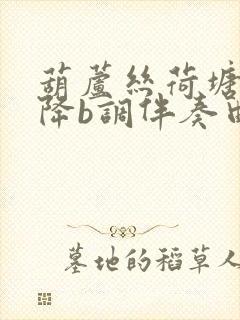 葫蘆絲荷塘
降b調伴奏曲
墓地的稻草人